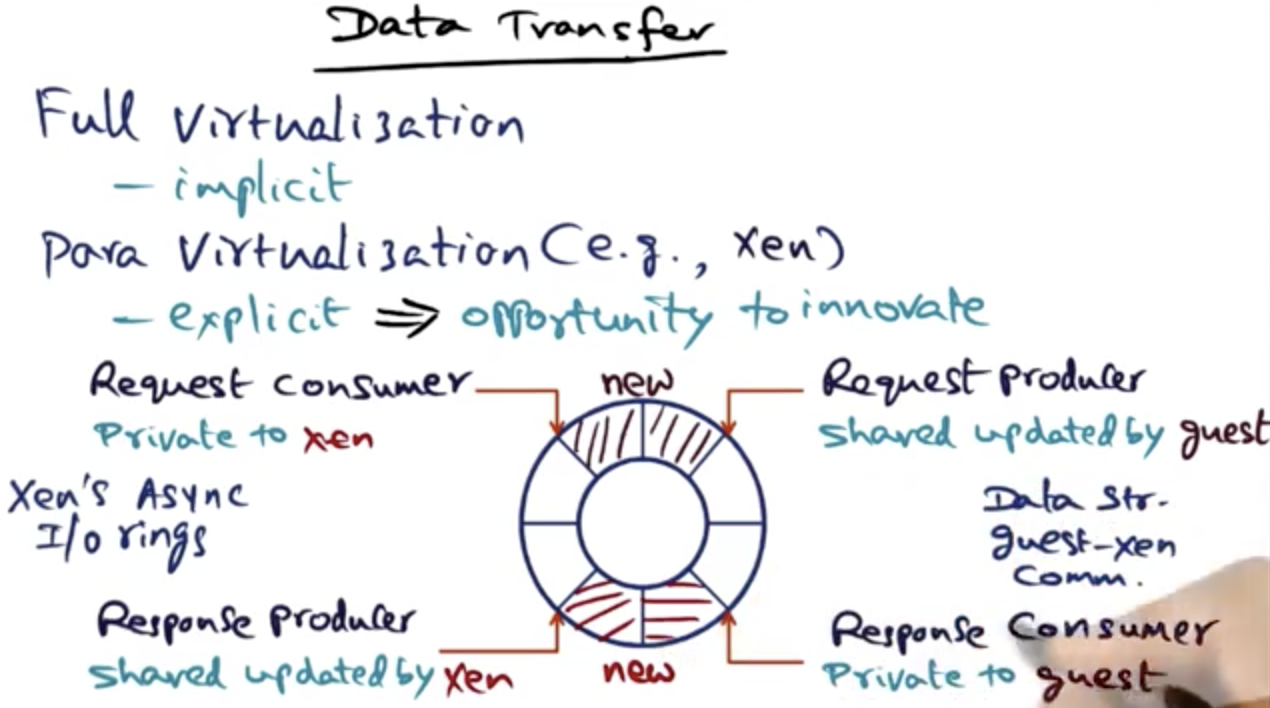 Data Transfer
Full Virtualization
- implicit
Para Virtualization (e.g., Xen)
- explicit ⇒ opportunity to innovate
Request Consumer
Private to xen
new
Request producer
shared updated by guest
Xen's Async
I/O rings
Data Str.
guest-xen
Comm.
Response producer
shared updated by xen
new
Response Consumer
Private to guest